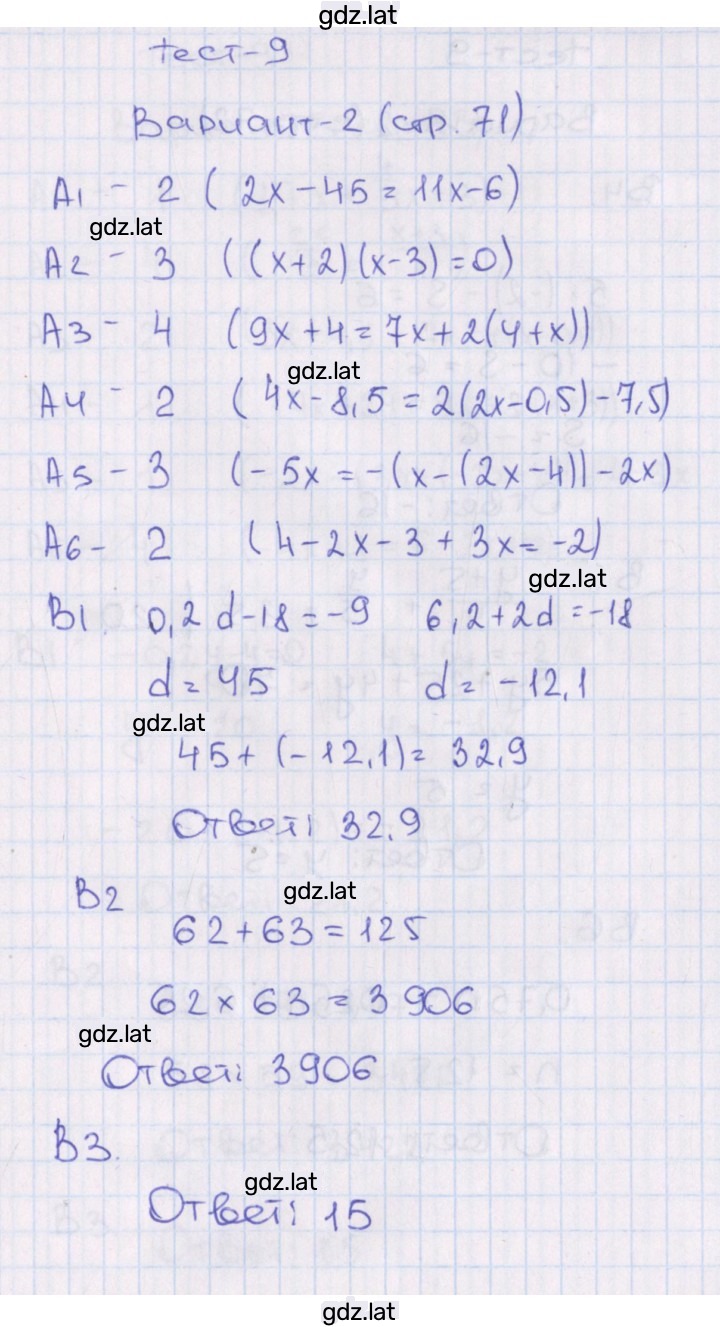 gdz.lat
тест-9
Вариант-2 (стр. 71)
А1 - 2 ( 2x - 45 = 11x - 6)
gdz.lat
А2 - 3 ( (x+2)(x-3) = 0)
А3 - 4 (9x + 4 = 7x + 2(4+x))
gdz.lat
А4 - 2 ( 4x - 8,5 = 2(2x - 0,5) - 7,5)
А5 - 3 (- 5x = -(x - (2x - 4)) - 2x)
А6 - 2 ( 4 - 2x - 3 + 3x = -2)
gdz.lat
В1. 0,2 d - 18 = -9 6,2 + 2d = -18
d = 45 d = -12,1
gdz.lat
45 + (-12,1) = 32,9
Ответ: 32,9
В2 gdz.lat
62 + 63 = 125
62 x 63 = 3906
gdz.lat
Ответ: 3906
В3.
gdz.lat
Ответ: 15
gdz.lat